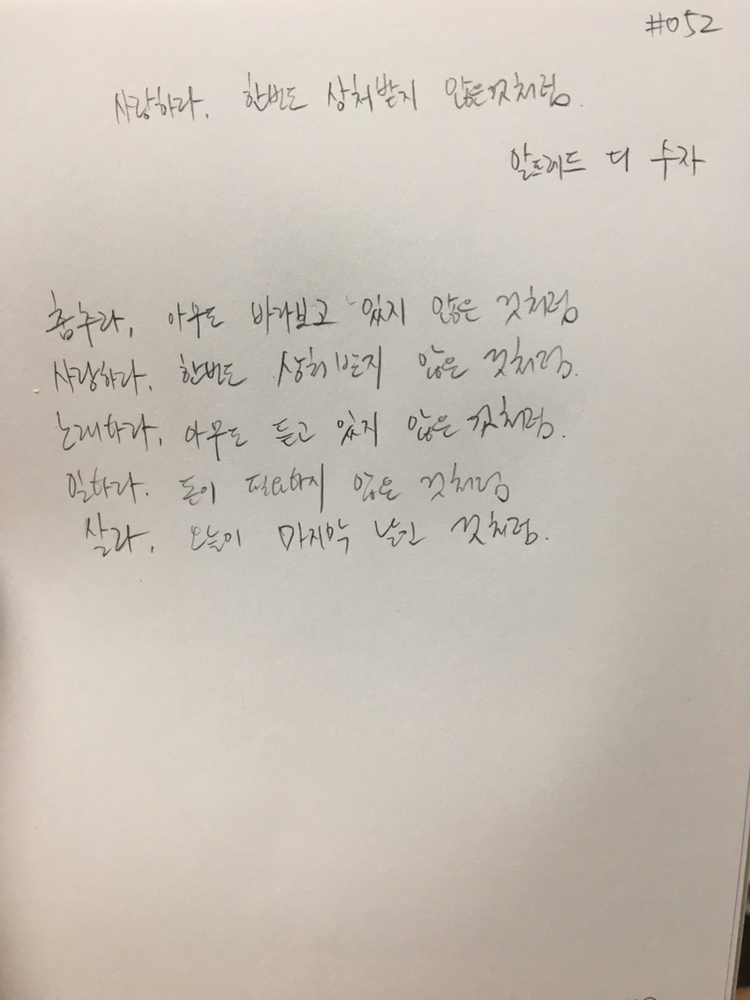 #052
사랑하라, 한번도 상처받지 않은것처럼.
알프레드 디 수자
춤추라, 아무도 바라보고 있지 않은 것처럼
사랑하라, 한번도 상처받지 않은 것처럼.
노래하라, 아무도 듣고 있지 않은 것처럼.
일하라. 돈이 필요하지 않은 것처럼
살라, 오늘이 마지막 날인 것처럼.